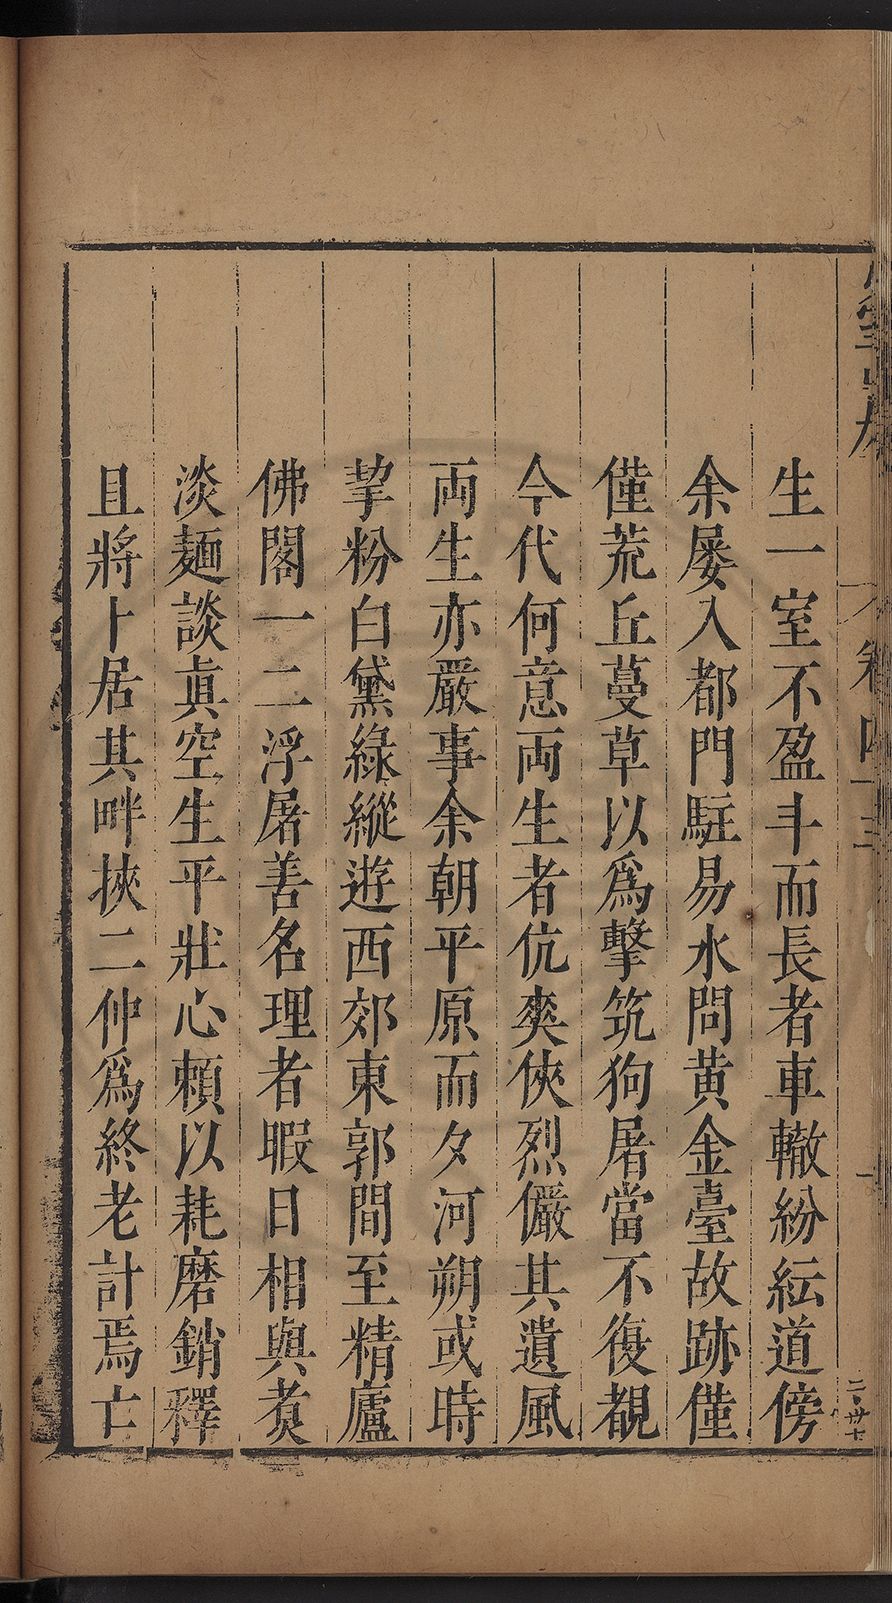 生一室不盈斗而長者車轍紛紜道傍
余屡入都門駐易水問黄金臺故跡僅
僅荒丘蔓草以爲擊筑狗屠當不復覩
今代何意両生者伉爽俠烈儼其遺風
両生亦嚴事余朝平原而夕河朔或時
挈粉白黛綠縱遊西郊東郭間至精廬
佛閣一二浮屠善名理者暇日相與煑
淡麵談眞空生平壯心頼以耗磨銷釋
且將卜居其畔挾二仲爲終老計焉亡
卷四十三